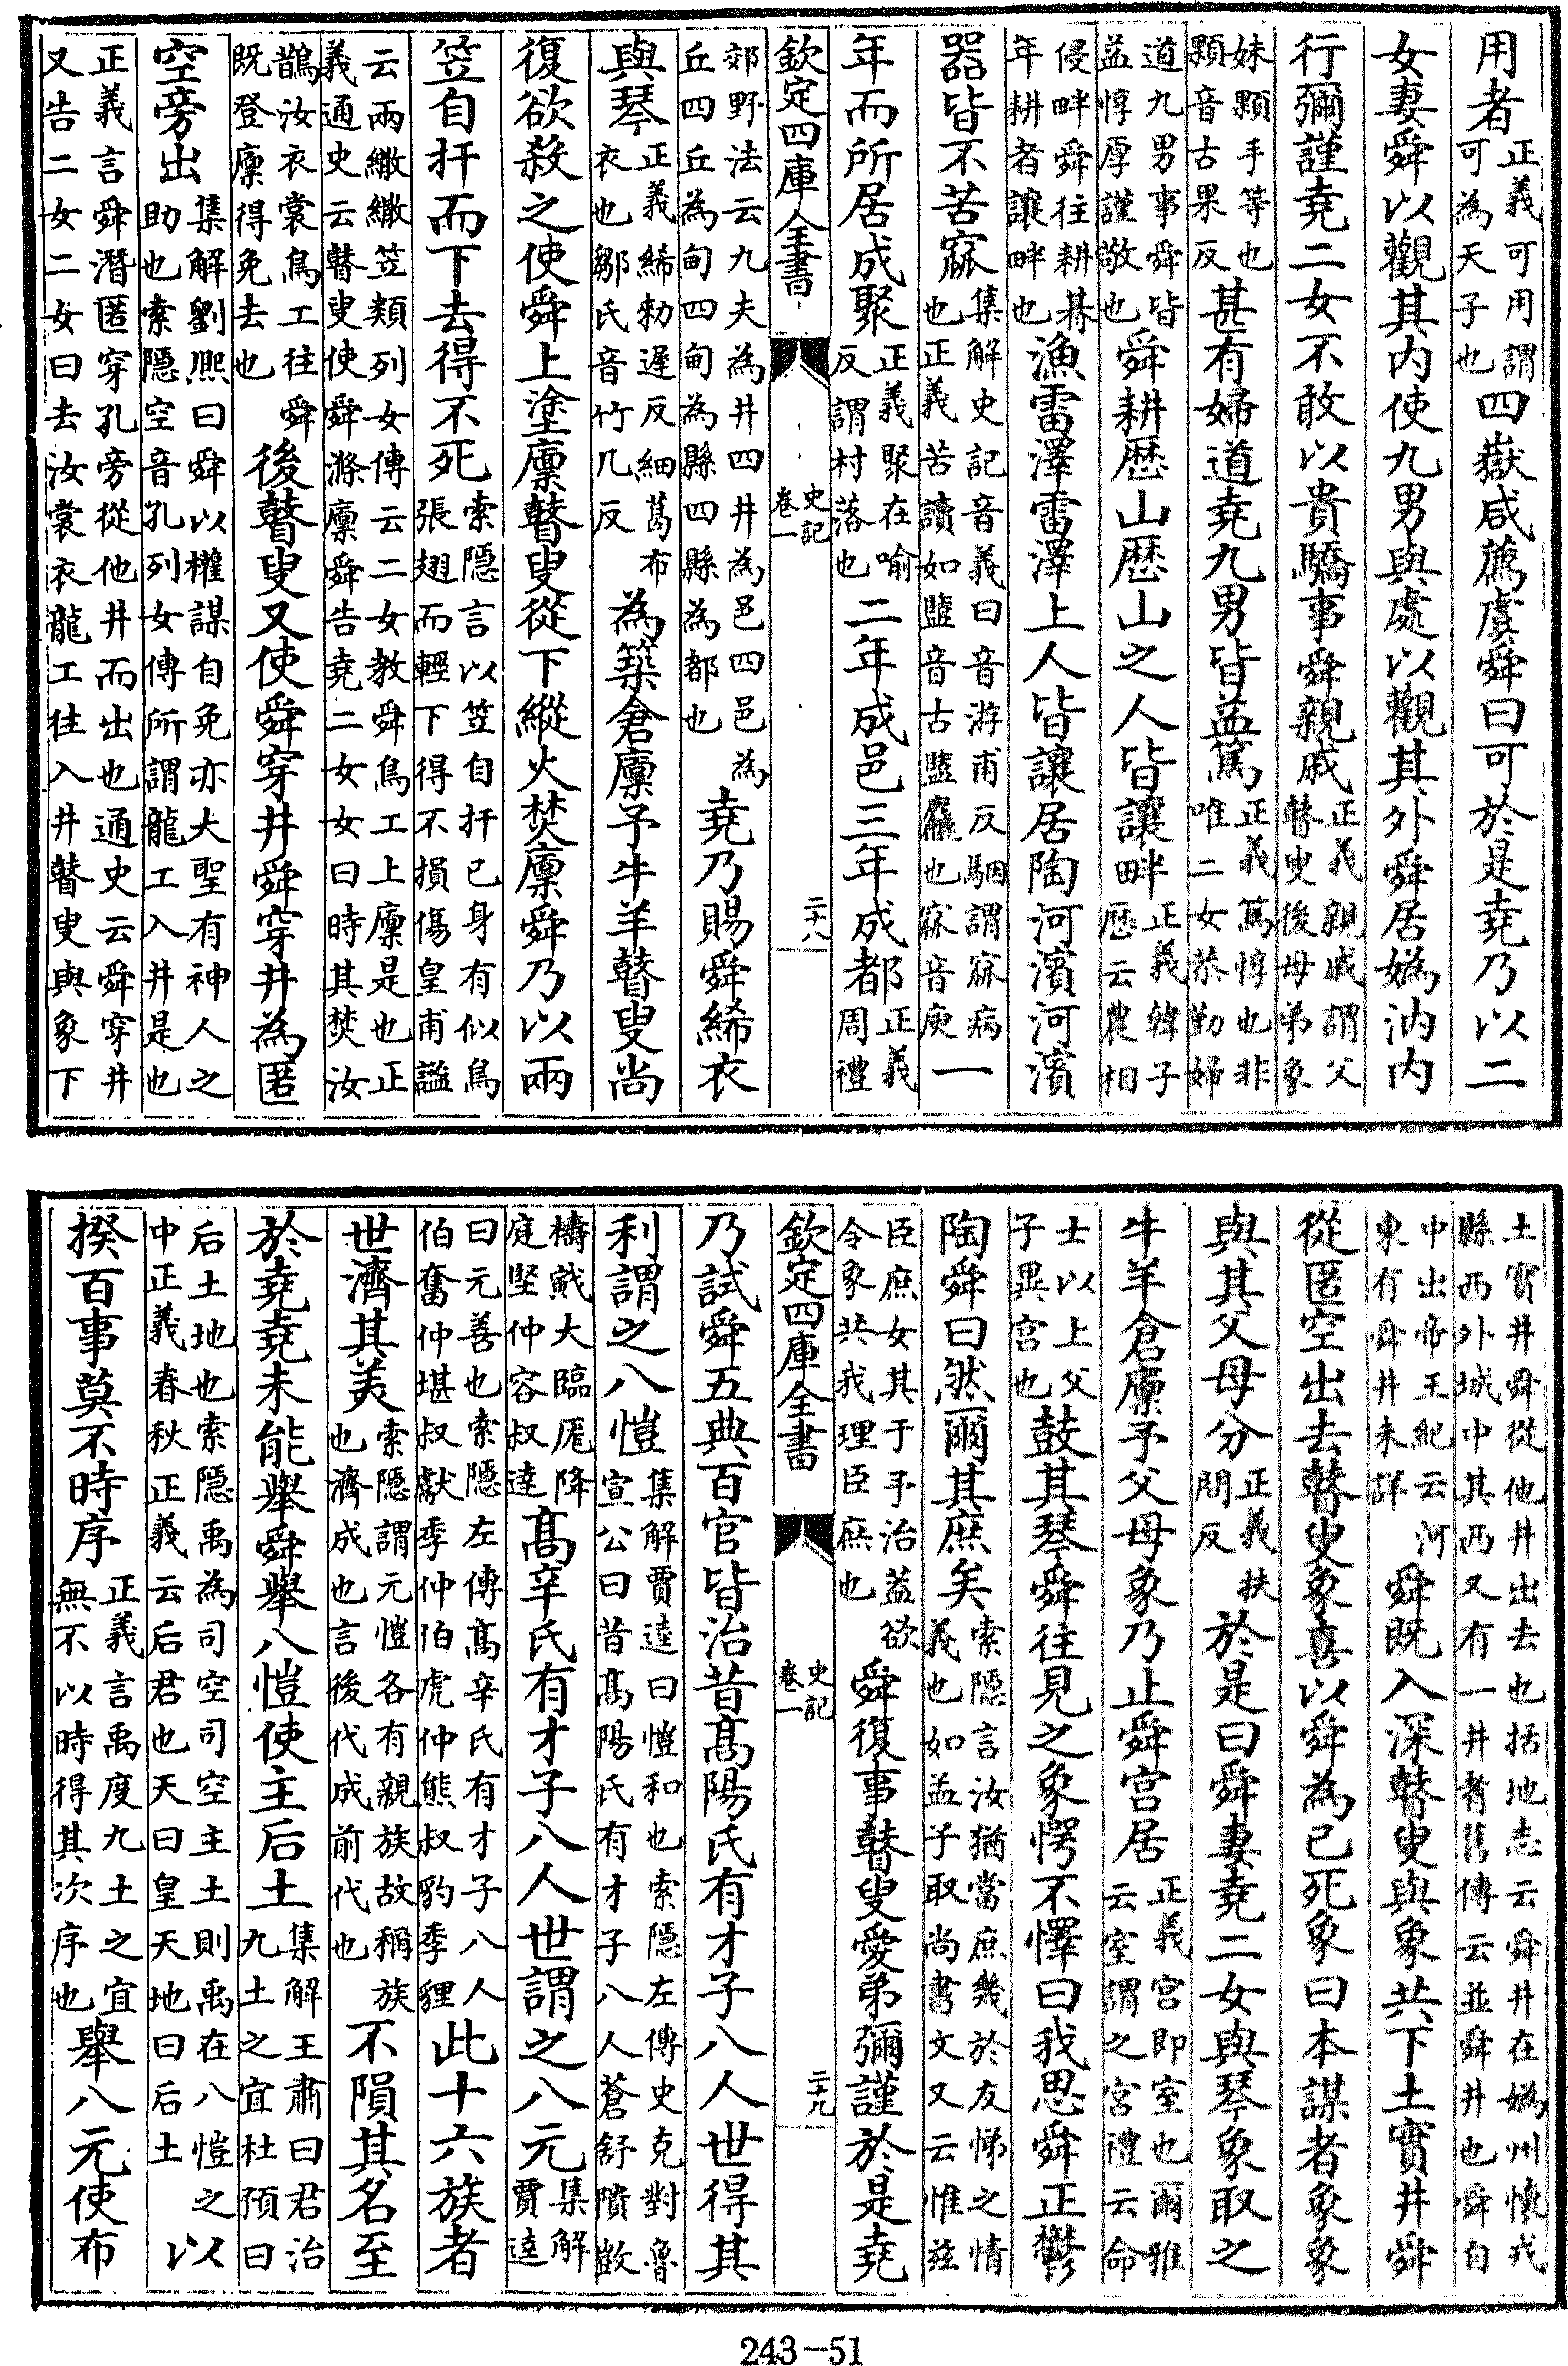 用者正義可用謂可為天子也四嶽咸薦虞舜曰可於是堯乃以二
女妻舜以觀其內使九男與處以觀其外舜居媯汭內
行彌謹堯二女不敢以貴驕事舜親戚正義親戚謂父瞽叟後母弟象
妹顆手等也顆音古果反甚有婦道堯九男皆益篤正義篤惇也非唯二女恭勤婦
道九男事舜皆益惇厚謹敬也舜耕歴山歴山之人皆讓畔正義韓子歴云農相
侵畔舜往耕朞年耕者讓畔也漁雷澤雷澤上人皆讓居陶河濱河濱
器皆不苦窳集解史記音義曰音游甫反駰謂窳病也正義苦讀如盬音古盬麤也窳音庾一
年而所居成聚正義聚在喻反謂村落也二年成邑三年成都正義周禮
欽定四庫全書 史記卷一 二十八
郊野法云九夫為井四井為邑四邑為丘四丘為甸四甸為縣四縣為都也堯乃賜舜絺衣
與琴正義絺勑遲反細葛布衣也鄒氏音竹几反為築倉廩予牛羊瞽叟尚
復欲殺之使舜上塗廩瞽叟從下縱火焚廩舜乃以兩
笠自扞而下去得不死索隱言以笠自扞已身有似鳥張翅而輕下得不損傷皇甫謐
云兩繖繖笠類列女傳云二女教舜鳥工上廩是也正義通史云瞽叟使舜滌廩舜告堯二女女曰時其焚汝
鵲汝衣裳鳥工往舜既登廩得免去也後瞽叟又使舜穿井舜穿井為匿
空旁出集解劉熈曰舜以權謀自免亦大聖有神人之助也索隱空音孔列女傳所謂龍工入井是也
正義言舜潛匿穿孔旁從他井而出也通史云舜穿井又告二女二女曰去汝裳衣龍工往入井瞽叟與象下
土實井舜從他井出去也括地志云舜井在媯州懷戎縣西外城中其西又有一井耆舊傳云並舜井也舜自
中出帝王紀云河東有舜井未詳舜既入深瞽叟與象共下土實井舜
從匿空出去瞽叟象喜以舜為已死象曰本謀者象象
與其父母分正義扶問反於是曰舜妻堯二女與琴象取之
牛羊倉廩予父母象乃止舜宮居正義宮即室也爾雅云室謂之宮禮云命
士以上父子異宮也鼓其琴舜往見之象愕不懌曰我思舜正鬱
陶舜曰然爾其庶矣索隱言汝猶當庶幾於友悌之情義也如孟子取尚書文又云惟茲
臣庶女其于予治蓋欲令象共我理臣庶也舜復事瞽叟愛弟彌謹於是堯
欽定四庫全書 史記卷一 二十九
乃試舜五典百官皆治昔髙陽氏有才子八人世得其
利謂之八愷集解賈逵曰愷和也索隱左傳史克對魯宣公曰昔髙陽氏有才子八人蒼舒隤敳
檮戭大臨厖降庭堅仲容叔達髙辛氏有才子八人世謂之八元集解賈逵
曰元善也索隱左傳髙辛氏有才子八人伯奮仲堪叔獻季仲伯虎仲熊叔豹季貍此十六族者
世濟其美索隱謂元愷各有親族故稱族也濟成也言後代成前代也不隕其名至
於堯堯未能舉舜舉八愷使主后土集解王肅曰君治九土之宜杜預曰
后土地也索隱禹為司空司空主土則禹在八愷之中正義春秋正義云后君也天曰皇天地曰后土以
揆百事莫不時序正義言禹度九土之宜無不以時得其次序也舉八元使布
243-51